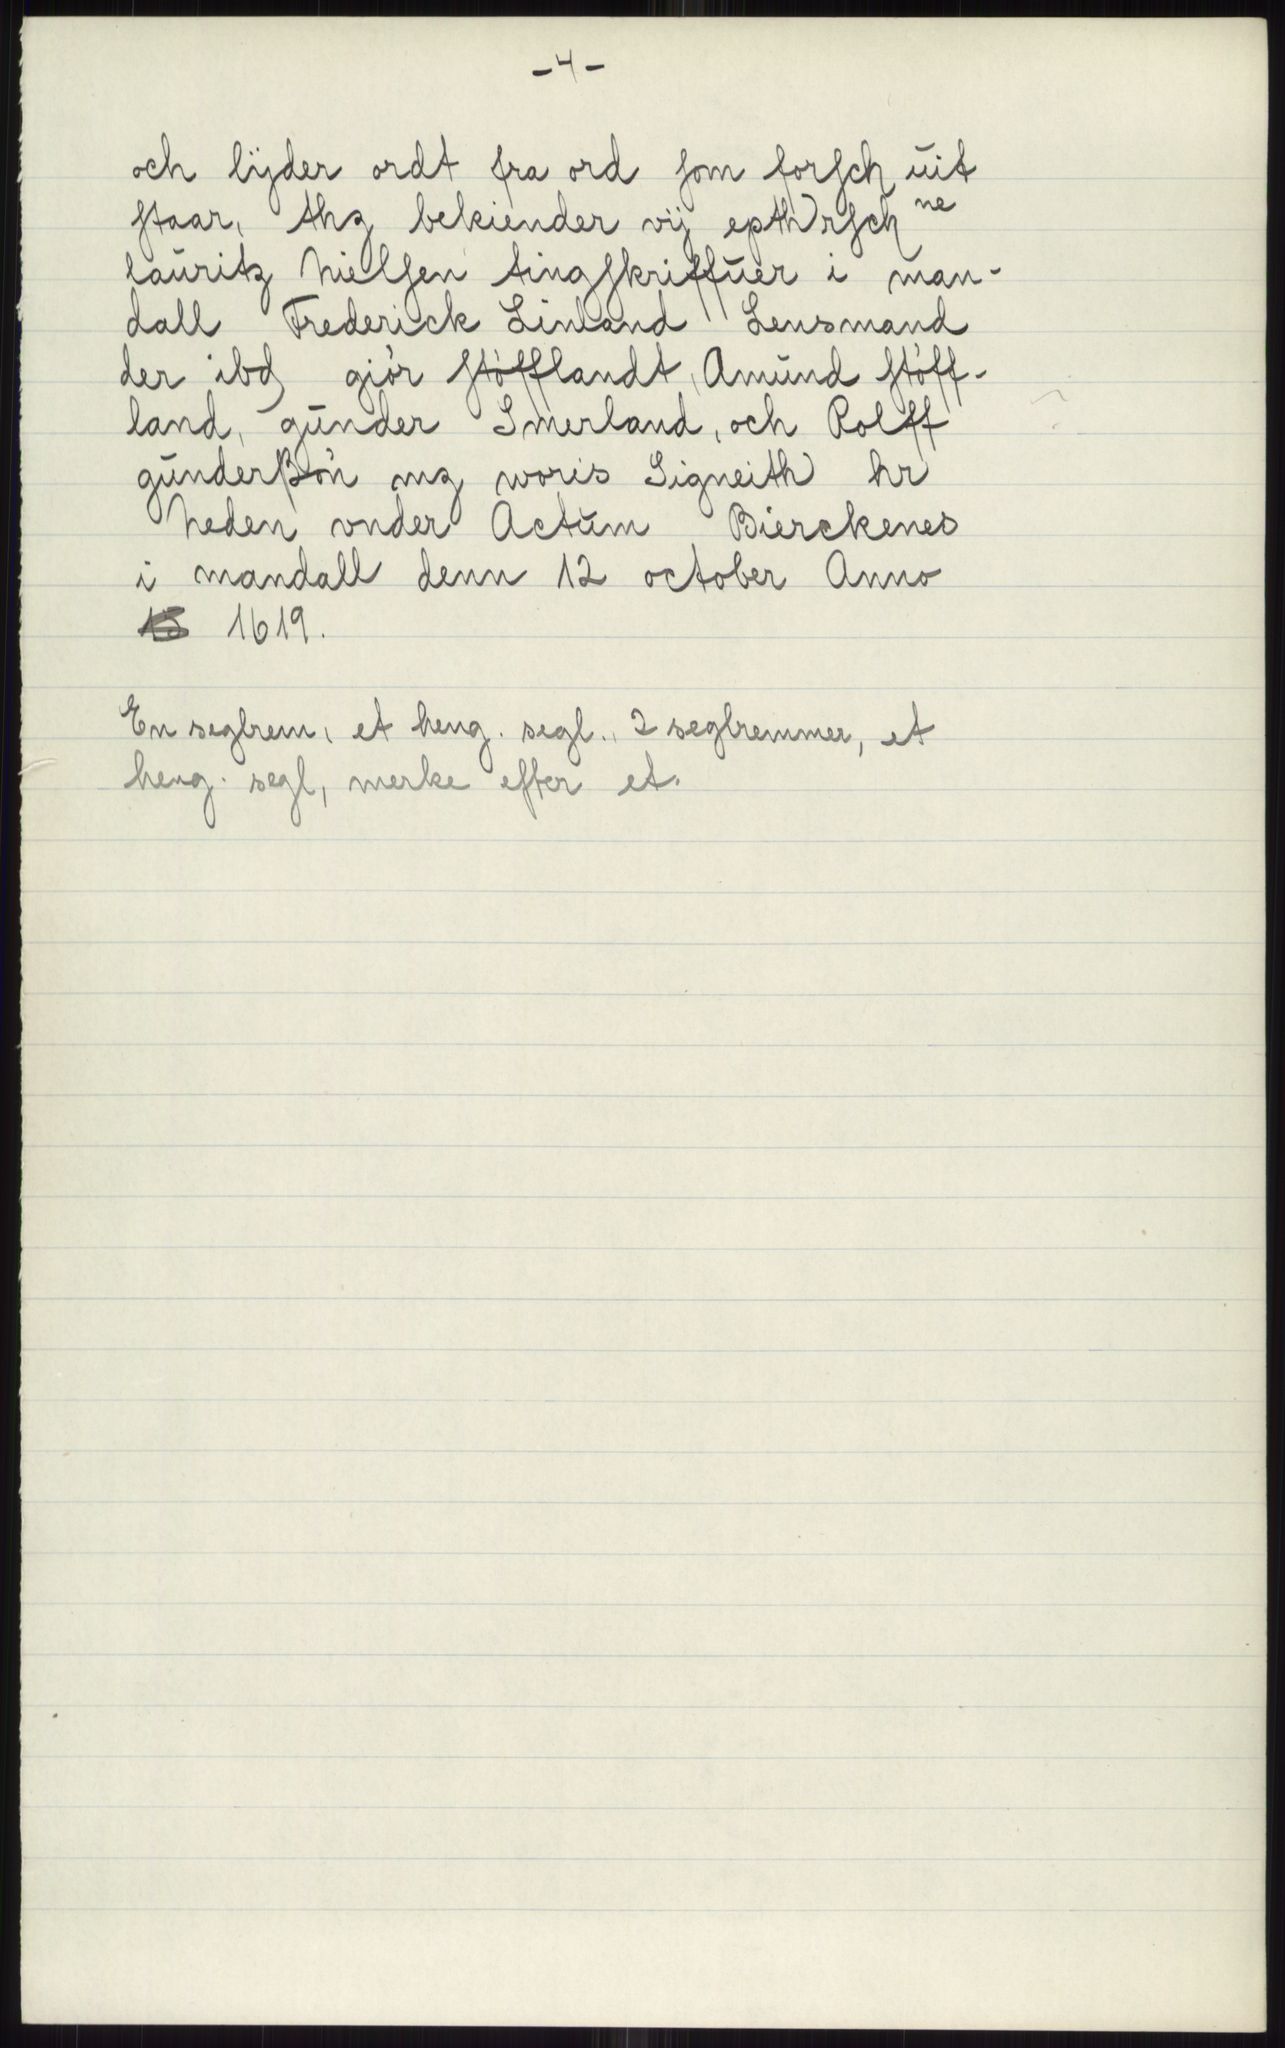 -4-
och lÿder ordt fra ord som forsch uit
staar, thz bekiender vij epthrsch ne
lauritz Nielsen tingskriffuer i man-
dall Frederick Linland Lensmand
der ibd giör Stöfflandt, Amund Stöff-
land, gunder Smerland, och Rolff
gunderßön mz woris Signeith hr
Neden vnder Actum Bierckenes
i mandall denn 12 october Anno
1619.
En seglrem, et heng. segl., 2 seglremmer, et
heng. segl, merke efter et.